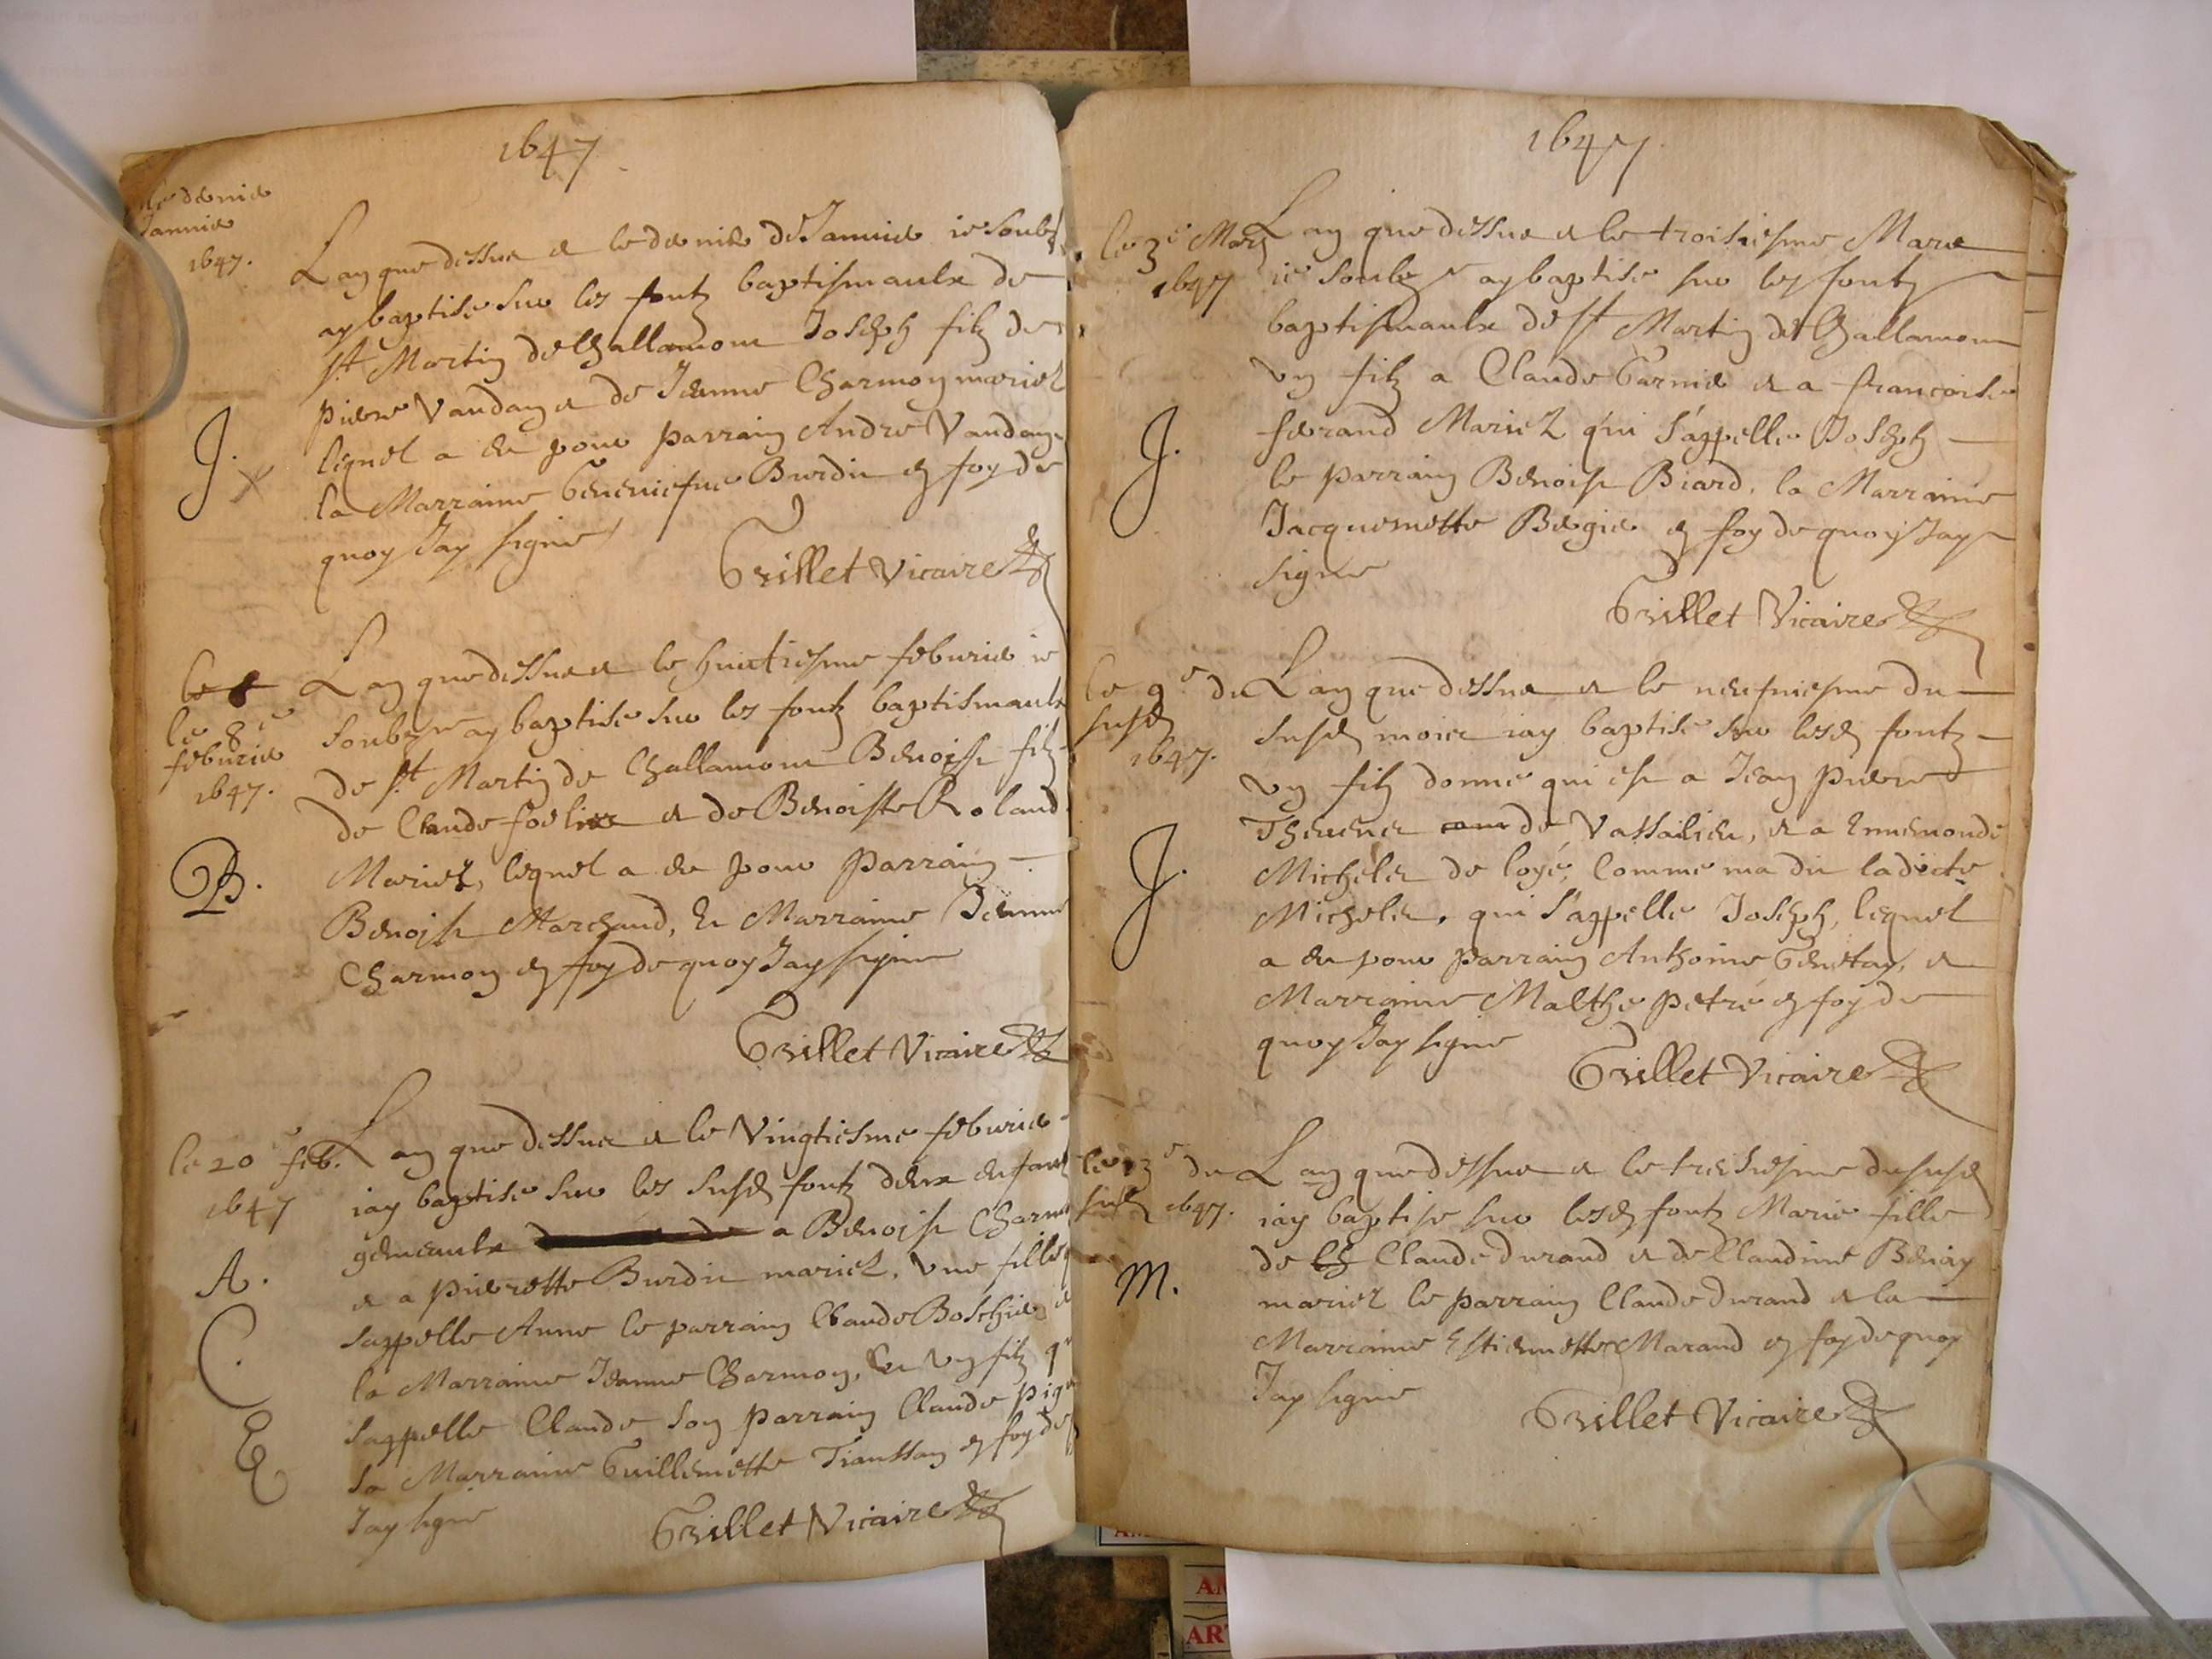 1647
le dernier
Januier
1647.
Lan que dessus et le dernier de Januier ie soubz
ay baptise sur les fontz baptismaulx de
st Martin de Challamont Joseph filz de
pierre Vandan et de Jeanne Charmon mariez
lequel a eu pour parrain Andre Vandan
la Marraine Geneniefue Burdin en foy de
quoy Jay signe
J.
Grillet Vicaire
le 8
le 8e
feburier
1647.
Lan que dessus et le huictiesme feburier ie
soubzne ay baptise sur les fontz baptismaulx
de st Martin de Challamont Benoist filz
de Claude et de Benoiste Roland
Mariez, lequel a eu pour parrain
Benoist Marchand, et Marraine Jeanne
Charmon en foy de quoy Jay signe
B.
Grillet Vicaire
le 20e feb.
1647
Lan que dessus et le Vingtiesme feburier
iay baptise sur les susd fontz deux enfant
gemeaulx a Benoist Charm
et a pierrette Burdin mariez, vne fille q
sappelle Anne le parrain Claude Boschier et
la Marraine Jeanne Charmon, et vn filz q
sappelle Claude son parrain Claude
sa Marraine Guillemette en foy de
Jay signe
A.
C.
E
Grillet Vicaire
1647.
le 3e Mars
1647
Lan que dessus et le troisiesme Mars
ie soubzne ay baptise sur les fontz
baptismaulx de st Martin de Challamon
vn filz a Claude Garnier et a francoise
ferand Mariez qui s'appelle Joseph
le parrain Benoist Biard, la Marraine
Jacquemette Bergier en foy de quoy Jay
signe
J.
Grillet Vicaire
le 9e du
susd
1647.
Lan que dessus et le neufuiesme du
susd mois iay baptise sur lesd fontz
vn filz donne qui est a Jean pierre
Theuenet de Vassalieu, et a Ennemonde
Michelet de loye, comme ma dit ladicte
Michelet, qui s'appelle Joseph, lequel
a eu pour parrain Anthoine Genetay, et
Marraine Malthe petré en foy de
quoy Jay signe
J.
Grillet Vicaire
le 13e du
susd 1647.
Lan que dessus et le treiziesme du susd
iay baptise sur lesd fontz Marie fille
de Claude durand et de Claudine Benay
mariez le parrain Claude durand et la
Marraine Estiennette Marand en foy de quoy
Jay signe
M.
Grillet Vicaire